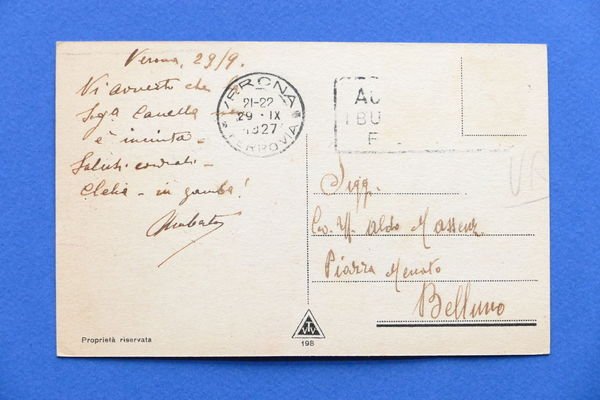 Verona, 29/9.
Vi avverto che
Sig.a Canella
è incinta.
Saluti cordiali -
Clelia - in gamba!
VERONA
21-22
29 · IX
1927
FERROVIA
AU
I BU
F
Sigg.
Aldo
Piazza Mercato
Belluno
Proprietà riservata
198